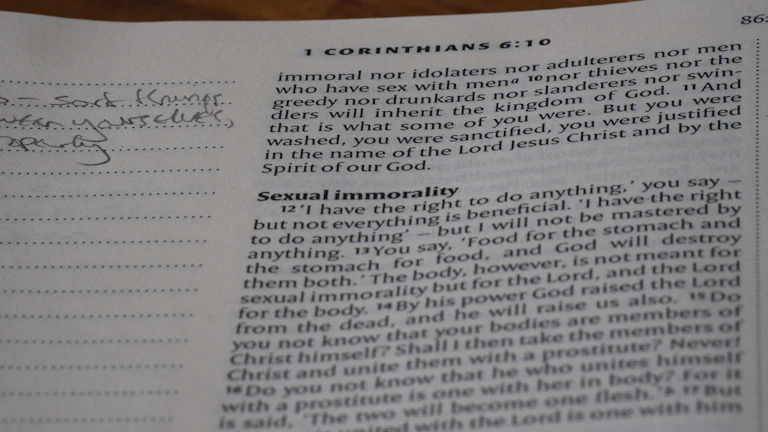 862
1 CORINTHIANS 6:10
sort things
yourselves,
immoral nor idolaters nor adulterers nor men
who have sex with men a 10 nor thieves nor the
greedy nor drunkards nor slanderers nor swin-
dlers will inherit the kingdom of God. 11 And
that is what some of you were. But you were
washed, you were sanctified, you were justified
in the name of the Lord Jesus Christ and by the
Spirit of our God.
Sexual immorality
12 ‘I have the right to do anything,’ you say –
but not everything is beneficial. ‘I have the right
to do anything’ – but I will not be mastered by
anything. 13 You say, ‘Food for the stomach and
the stomach for food, and God will destroy
them both.’ The body, however, is not meant for
sexual immorality but for the Lord, and the Lord
for the body. 14 By his power God raised the Lord
from the dead, and he will raise us also. 15 Do
you not know that your bodies are members of
Christ himself? Shall I then take the members of
Christ and unite them with a prostitute? Never!
16 Do you not know that he who unites himself
with a prostitute is one with her in body? For it
is said, ‘The two will become one flesh.’ b 17 But
united with the Lord is one with him